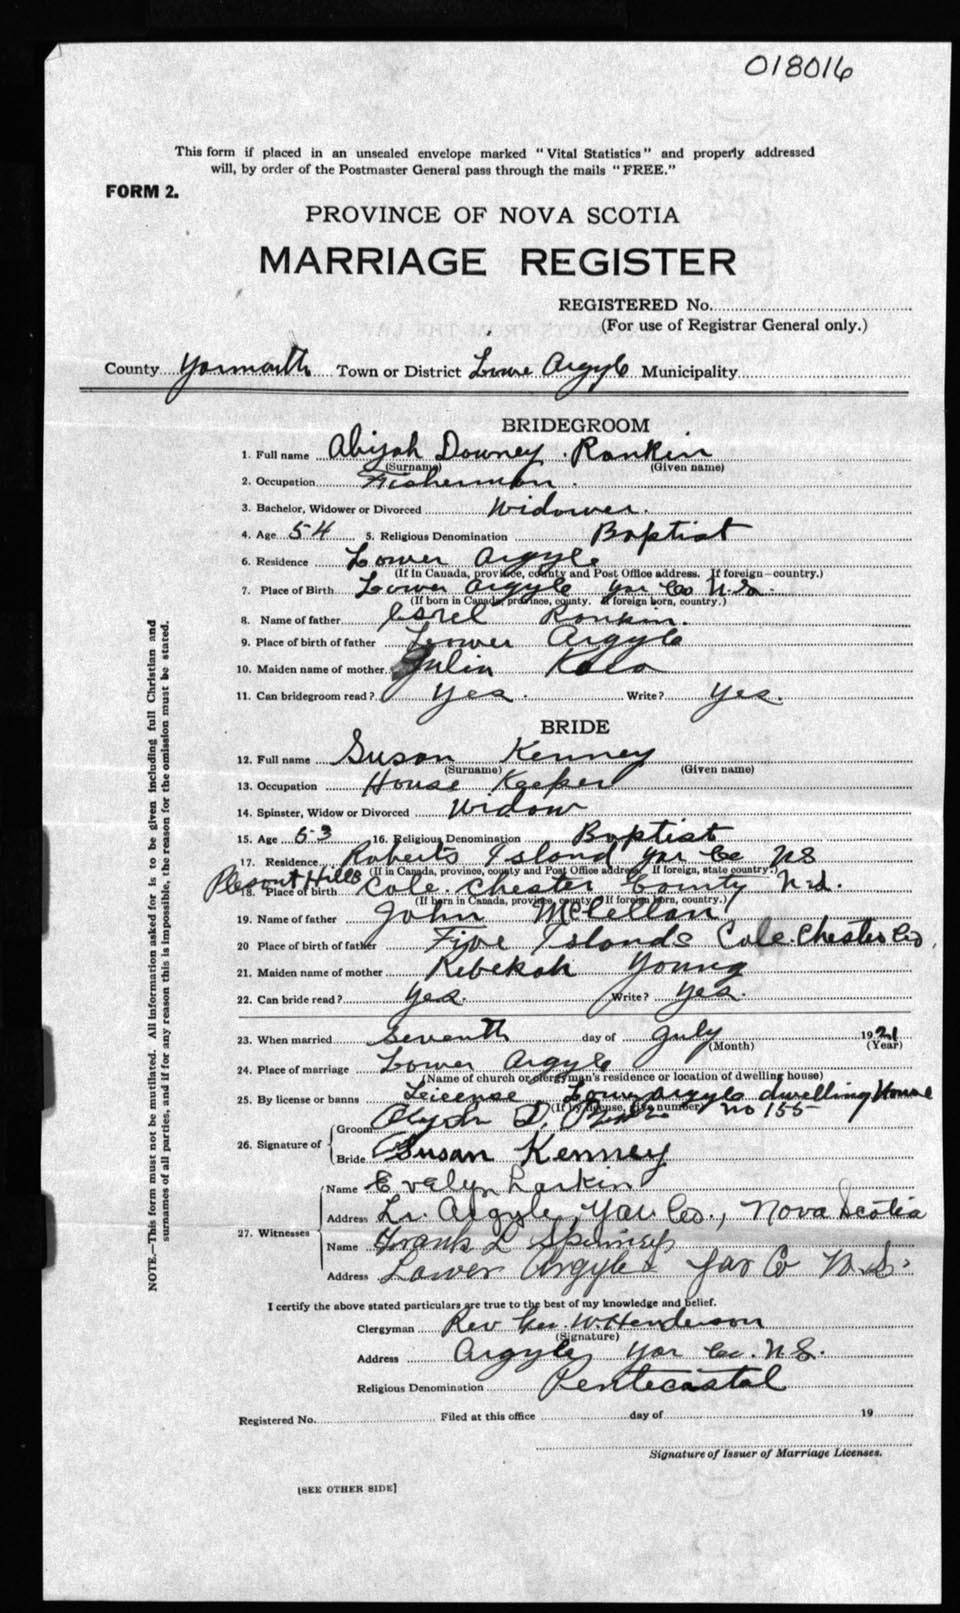 018016
This form if placed in an unsealed envelope marked "Vital Statistics" and properly addressed
will, by order of the Postmaster General pass through the mails "FREE."
FORM 2.
PROVINCE OF NOVA SCOTIA
MARRIAGE REGISTER
REGISTERED No.
(For use of Registrar General only.)
County Yarmouth Town or District Lower Argyle Municipality
BRIDEGROOM
1. Full name Abijah Downey Rankin
(Surname) (Given name)
2. Occupation Fisherman
3. Bachelor, Widower or Divorced Widower.
4. Age 54 5. Religious Denomination Baptist
6. Residence Lower Argyle
(If in Canada, province, county and Post Office address. If foreign—country.)
7. Place of Birth Lower Argyle Yar Co N.S.
(If born in Canada, province, county. If foreign born, country.)
8. Name of father Rankin.
9. Place of birth of father Lower Argyle
10. Maiden name of mother Julia
11. Can bridegroom read? Yes. Write? Yes.
BRIDE
12. Full name Susan Kenney
(Surname) (Given name)
13. Occupation House Keeper
14. Spinster, Widow or Divorced Widow
15. Age 53 16. Religious Denomination Baptist
17. Residence Roberts Island Yar Co NS
(If in Canada, province, county and Post Office address. If foreign, state country.)
Plesant Hills
18. Place of birth Cole. Chester County N.S.
(If born in Canada, province, county. If foreign born, country.)
19. Name of father John McLellan
20 Place of birth of father Five Islands Cole. Chester Co,
21. Maiden name of mother Rebekah Young
22. Can bride read? Yes. Write? Yes.
23. When married Seventh day of July 1921
(Month) (Year)
24. Place of marriage Lower Argyle
(Name of church or clergyman's residence or location of dwelling house)
25. By license or banns License Lower Argyle dwelling House
(If by license, give number) No 155
26. Signature of
Groom
Bride Susan Kenney
27. Witnesses
Name Evelyn Larkin
Address Lr. Argyle, Yar. Co., Nova Scotia
Name Frank L Spinney
Address Lower Argyle Yar Co N.S.
I certify the above stated particulars are true to the best of my knowledge and belief.
Clergyman Rev Geo. W. Henderson
(Signature)
Address Argyle, Yar Co. N.S.
Religious Denomination Pentecostal
Registered No. Filed at this office day of 19
Signature of Issuer of Marriage Licenses.
[SEE OTHER SIDE]
NOTE.—This form must not be mutilated. All information asked for is to be given including full Christian and
surnames of all parties, and if for any reason this is impossible, the reason for the omission must be stated.